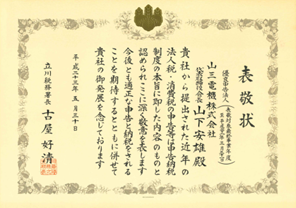 表敬状
山三電機株式会社
代表取締役会長 山下安雄 殿
貴社から提出された近年の
法人税・消費税の申告等は申告納税
制度の本旨に即した内容のものと
認められここに深く敬意を表します
今後とも適正な申告と納税をされる
ことを期待するとともに併せて
貴社の御発展を念じております
平成二十三年五月三十日
立川税務署長
古屋好清